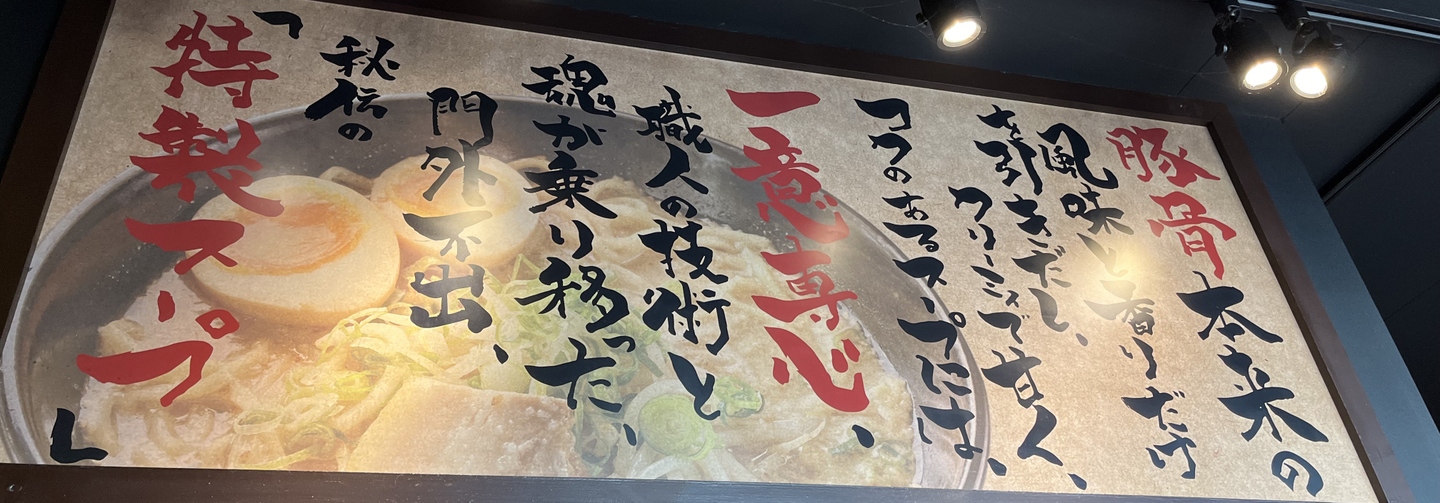 豚骨本来の
風味と香りだけ
を引きだし、
クリーミィで甘く、
コクのあるスープには、
一意専心、
職人の技術と
魂が乗り移った、
門外不出、
秘伝の
「特製スープ」